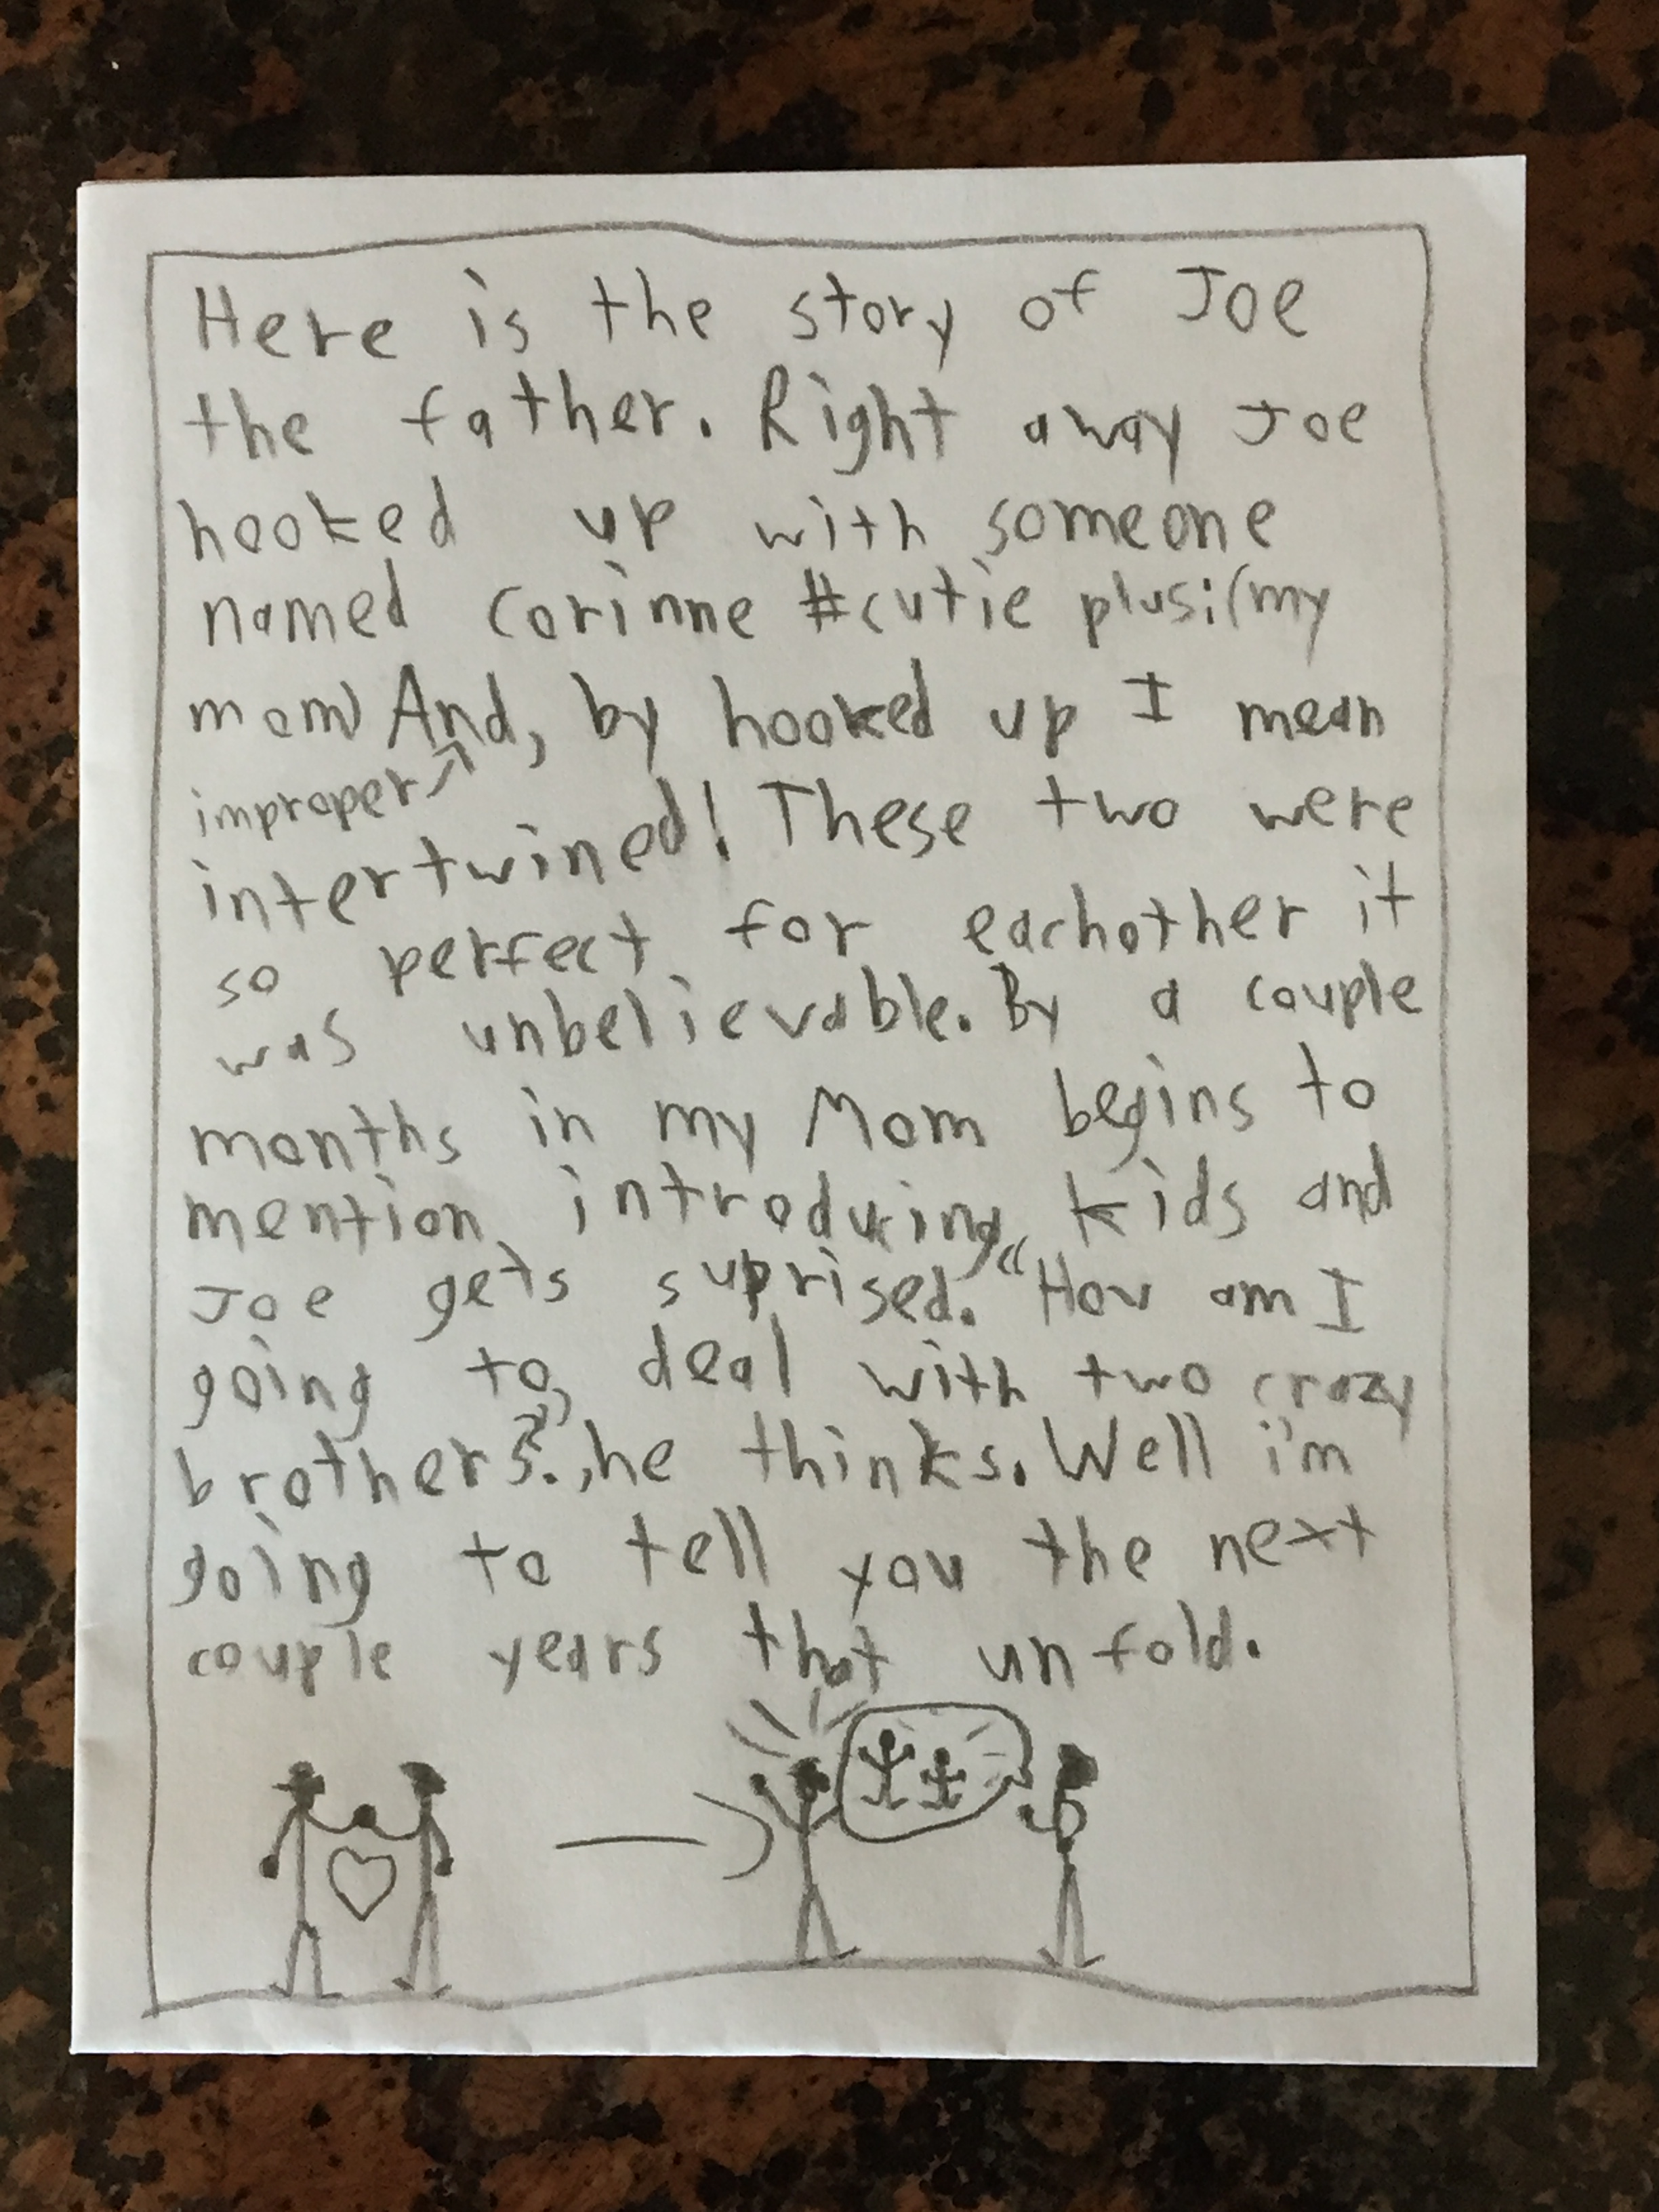 Here is the story of Joe
the father. Right away Joe
hooked up with someone
named Corinne #cutie plus:(my
mom) And, by hooked up I mean
improper
intertwined! These two were
so perfect for eachother it
was unbelievable. By a couple
months in my Mom begins to
mention introducing kids and
Joe gets suprised. "How am I
going to, deal with two crazy
brothers?", he thinks. Well i'm
going to tell you the next
couple years that unfold.